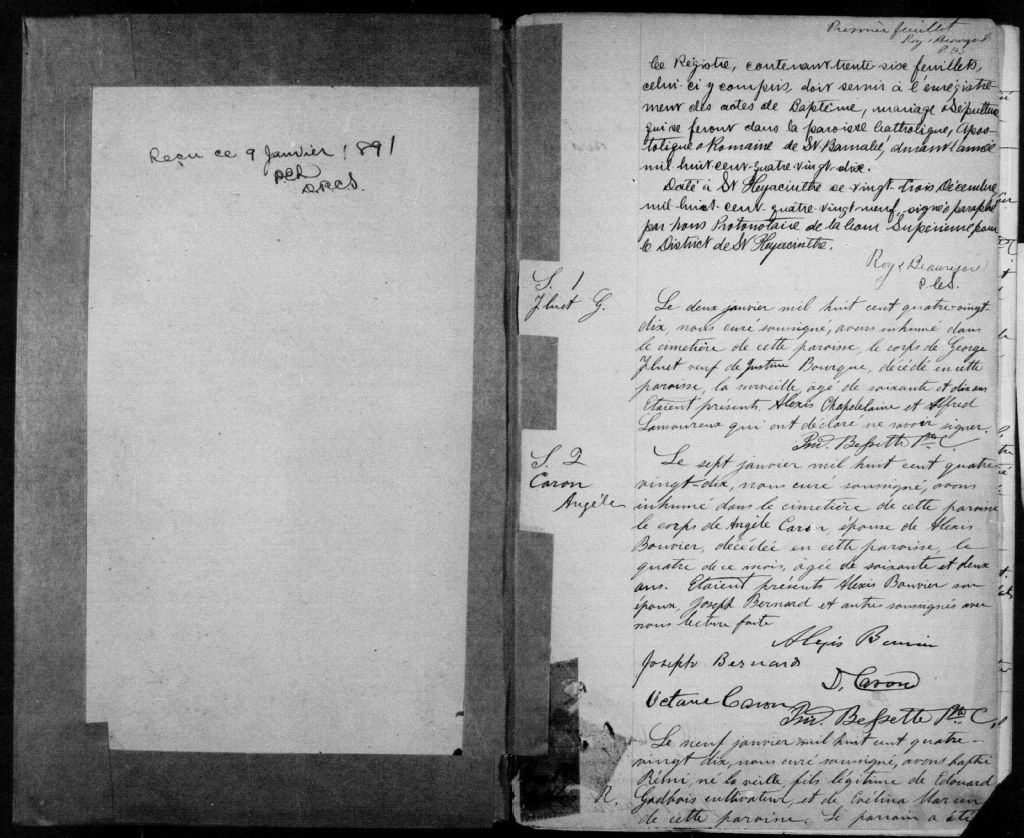 Reçu ce 9 Janvier 1891
Premier feuillet
Roy & Beauregard
P.C.S.
Ce Régistre, contenant trente six feuillets,
celui-ci y compris, doit servir à l'enrégistre-
ment des actes de Baptême, mariage & Sépulture
qui se feront dans la paroisse Catholique, Apos-
tolique & Romaine de St Barnabé, durant l'année
mil huit-cent-quatre vingt-dix.
Daté à St Hyacinthe ce vingt-trois Décembre
mil-huit-cent-quatre-vingt-neuf, signé & paraphé
par nous Protonotaire de la Cour Supérieure pour
le District de St Hyacinthe.
Roy & Beauregard
P.C.S.
S. 1
Fluet G.
Le deux janvier mil huit cent quatre-vingt-
dix, nous curé soussigné, avons inhumé dans
le cimetière de cette paroisse, le corps de George
Fluet veuf de Justine Bourque, décédé en cette
paroisse, la surveille âgé de soixante et dix ans
Etaient présents Alexis Chapdelaine et Alfred
Lamoureux qui ont déclaré ne savoir signer.
Bessette Ptre C.
S. 2
Caron
Angèle
Le sept janvier mil huit cent quatre-
vingt-dix, nous curé soussigné, avons
inhumé dans le cimetière de cette paroisse
le corps de Angèle Caron, épouse de Alexis
Bouvier, décédée en cette paroisse, le
quatre de ce mois, âgée de soixante et deux
ans. Etaient présents Alexis Bouvier son
époux, Joseph Bernard et autres soussignés avec
nous lecture faite
Alexis Bouvier
Joseph Bernard
D. Caron
Octave Caron
Bessette Ptre C.
Le neuf janvier mil huit cent quatre-
vingt dix, nous curé soussigné, avons baptisé
Rémi, né la veille fils légitime de Edouard
Gadbois cultivateur, et de Evélina Marcen
de cette paroisse. Le parrain a été